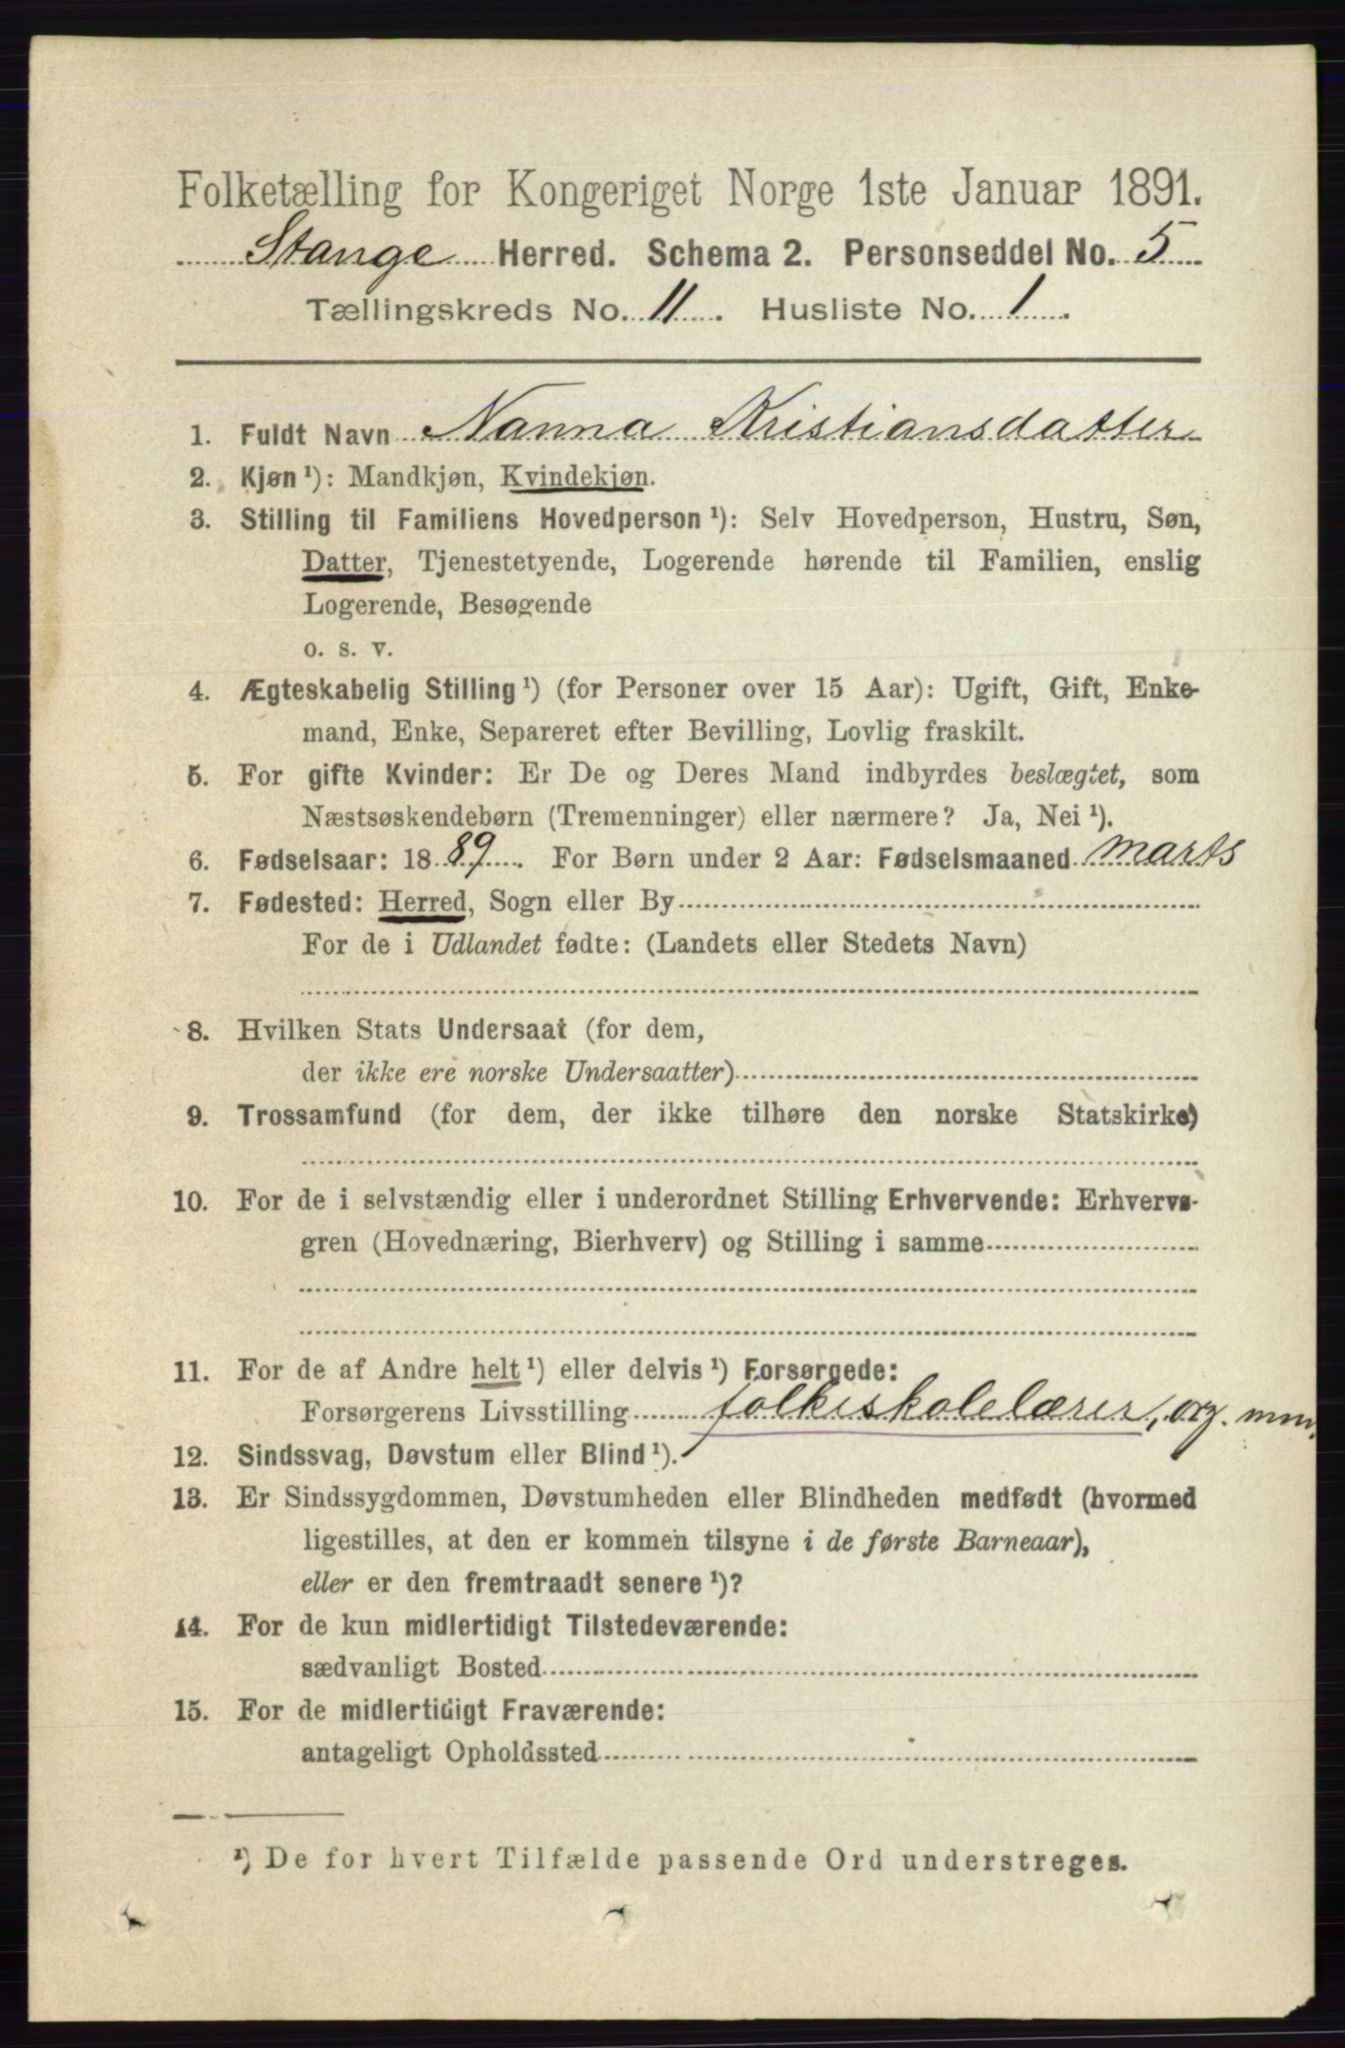 Folketælling for Kongeriget Norge 1ste Januar 1891.
Stange Herred. Schema 2. Personseddel No. 5
Tællingskreds No. 11. Husliste No. 1.
1. Fuldt Navn Nanna Kristiansdatter
2. Kjøn ¹): Mandkjøn, Kvindekjøn.
3. Stilling til Familiens Hovedperson ¹): Selv Hovedperson, Hustru, Søn,
Datter, Tjenestetyende, Logerende hørende til Familien, enslig
Logerende, Besøgende
o. s. v.
4. Ægteskabelig Stilling ¹) (for Personer over 15 Aar): Ugift, Gift, Enke-
mand, Enke, Separeret efter Bevilling, Lovlig fraskilt.
5. For gifte Kvinder: Er De og Deres Mand indbyrdes beslægtet, som
Næstsøskendebørn (Tremenninger) eller nærmere? Ja, Nei ¹).
6. Fødselsaar: 1889. For Børn under 2 Aar: Fødselsmaaned marts
7. Fødested: Herred, Sogn eller By
For de i Udlandet fødte: (Landets eller Stedets Navn)
8. Hvilken Stats Undersaat (for dem,
der ikke ere norske Undersaatter)
9. Trossamfund (for dem, der ikke tilhøre den norske Statskirke)
10. For de i selvstændig eller i underordnet Stilling Erhvervende: Erhvervs-
gren (Hovednæring, Bierhverv) og Stilling i samme
11. For de af Andre helt ¹) eller delvis ¹) Forsørgede:
Forsørgerens Livsstilling folkeskolelærer, org. mm.
12. Sindssvag, Døvstum eller Blind ¹).
13. Er Sindssygdommen, Døvstumheden eller Blindheden medfødt (hvormed
ligestilles, at den er kommen tilsyne i de første Barneaar),
eller er den fremtraadt senere ¹)?
14. For de kun midlertidigt Tilstedeværende:
sædvanligt Bosted
15. For de midlertidigt Fraværende:
antageligt Opholdssted
¹) De for hvert Tilfælde passende Ord understreges.